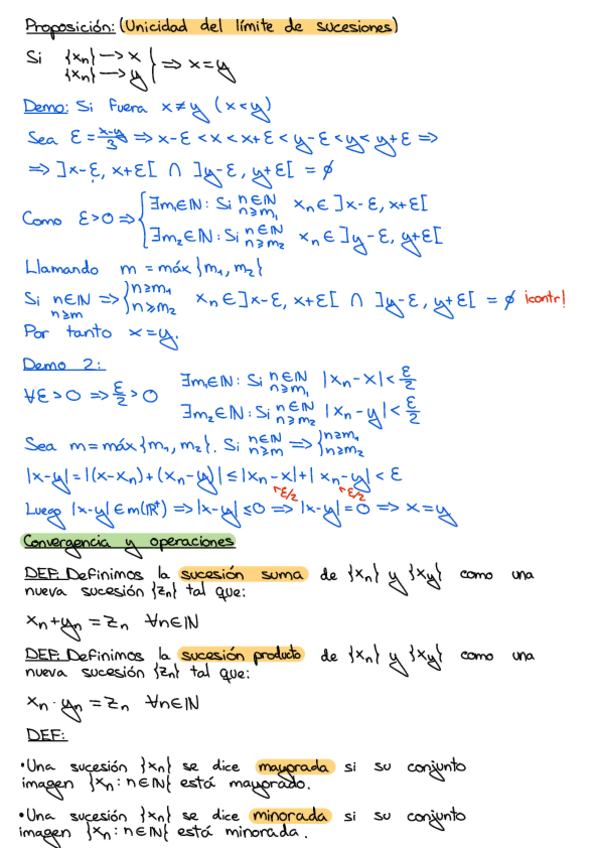 Proposición: (Unicidad del límite de sucesiones)
Si {xₙ} → x
{xₙ} → y } ⇒ x=y
Demo: Si fuera x≠y (x<y)
Sea ε = (x-y)/3 ⇒ x-ε < x < x+ε < y-ε < y < y+ε ⇒
⇒ ]x-ε, x+ε[ ∩ ]y-ε, y+ε[ = ∅
Como ε>0 ⇒ { ∃m₁∈ℕ: Si n∈ℕ n≥m₁ xₙ∈]x-ε, x+ε[
∃m₂∈ℕ: Si n∈ℕ n≥m₂ xₙ∈]y-ε, y+ε[
Llamando m = máx{m₁, m₂}
Si n∈ℕ n≥m ⇒ { n≥m₁ n≥m₂ xₙ∈]x-ε, x+ε[ ∩ ]y-ε, y+ε[ = ∅ ¡contr!
Por tanto x=y.
Demo 2:
∀ε>0 ⇒ ε/2 >0 ∃m₁∈ℕ: Si n∈ℕ n≥m₁ |xₙ-x| < ε/2
∃m₂∈ℕ: Si n∈ℕ n≥m₂ |xₙ-y| < ε/2
Sea m=máx{m₁, m₂}. Si n∈ℕ n≥m ⇒ { n≥m₁ n≥m₂
|x-y|=|(x-xₙ)+(xₙ-y)| ≤ |xₙ-x|+|xₙ-y| < ε
<ε/2 <ε/2
Luego |x-y| ∈ m(ℝ⁺) ⇒ |x-y| ≤0 ⇒ |x-y|=0 ⇒ x=y
Convergencia y operaciones
DEF: Definimos la sucesión suma de {xₙ} y {xy} como una
nueva sucesión {zₙ} tal que:
xₙ+yₙ = zₙ ∀n∈ℕ
DEF: Definimos la sucesión producto de {xₙ} y {xy} como una
nueva sucesión {zₙ} tal que:
xₙ · yₙ = zₙ ∀n∈ℕ
DEF:
•Una sucesión {xₙ} se dice mayorada si su conjunto
imagen {xₙ : n∈ℕ} está mayorado.
•Una sucesión {xₙ} se dice minorada si su conjunto
imagen {xₙ : n∈ℕ} está minorada.